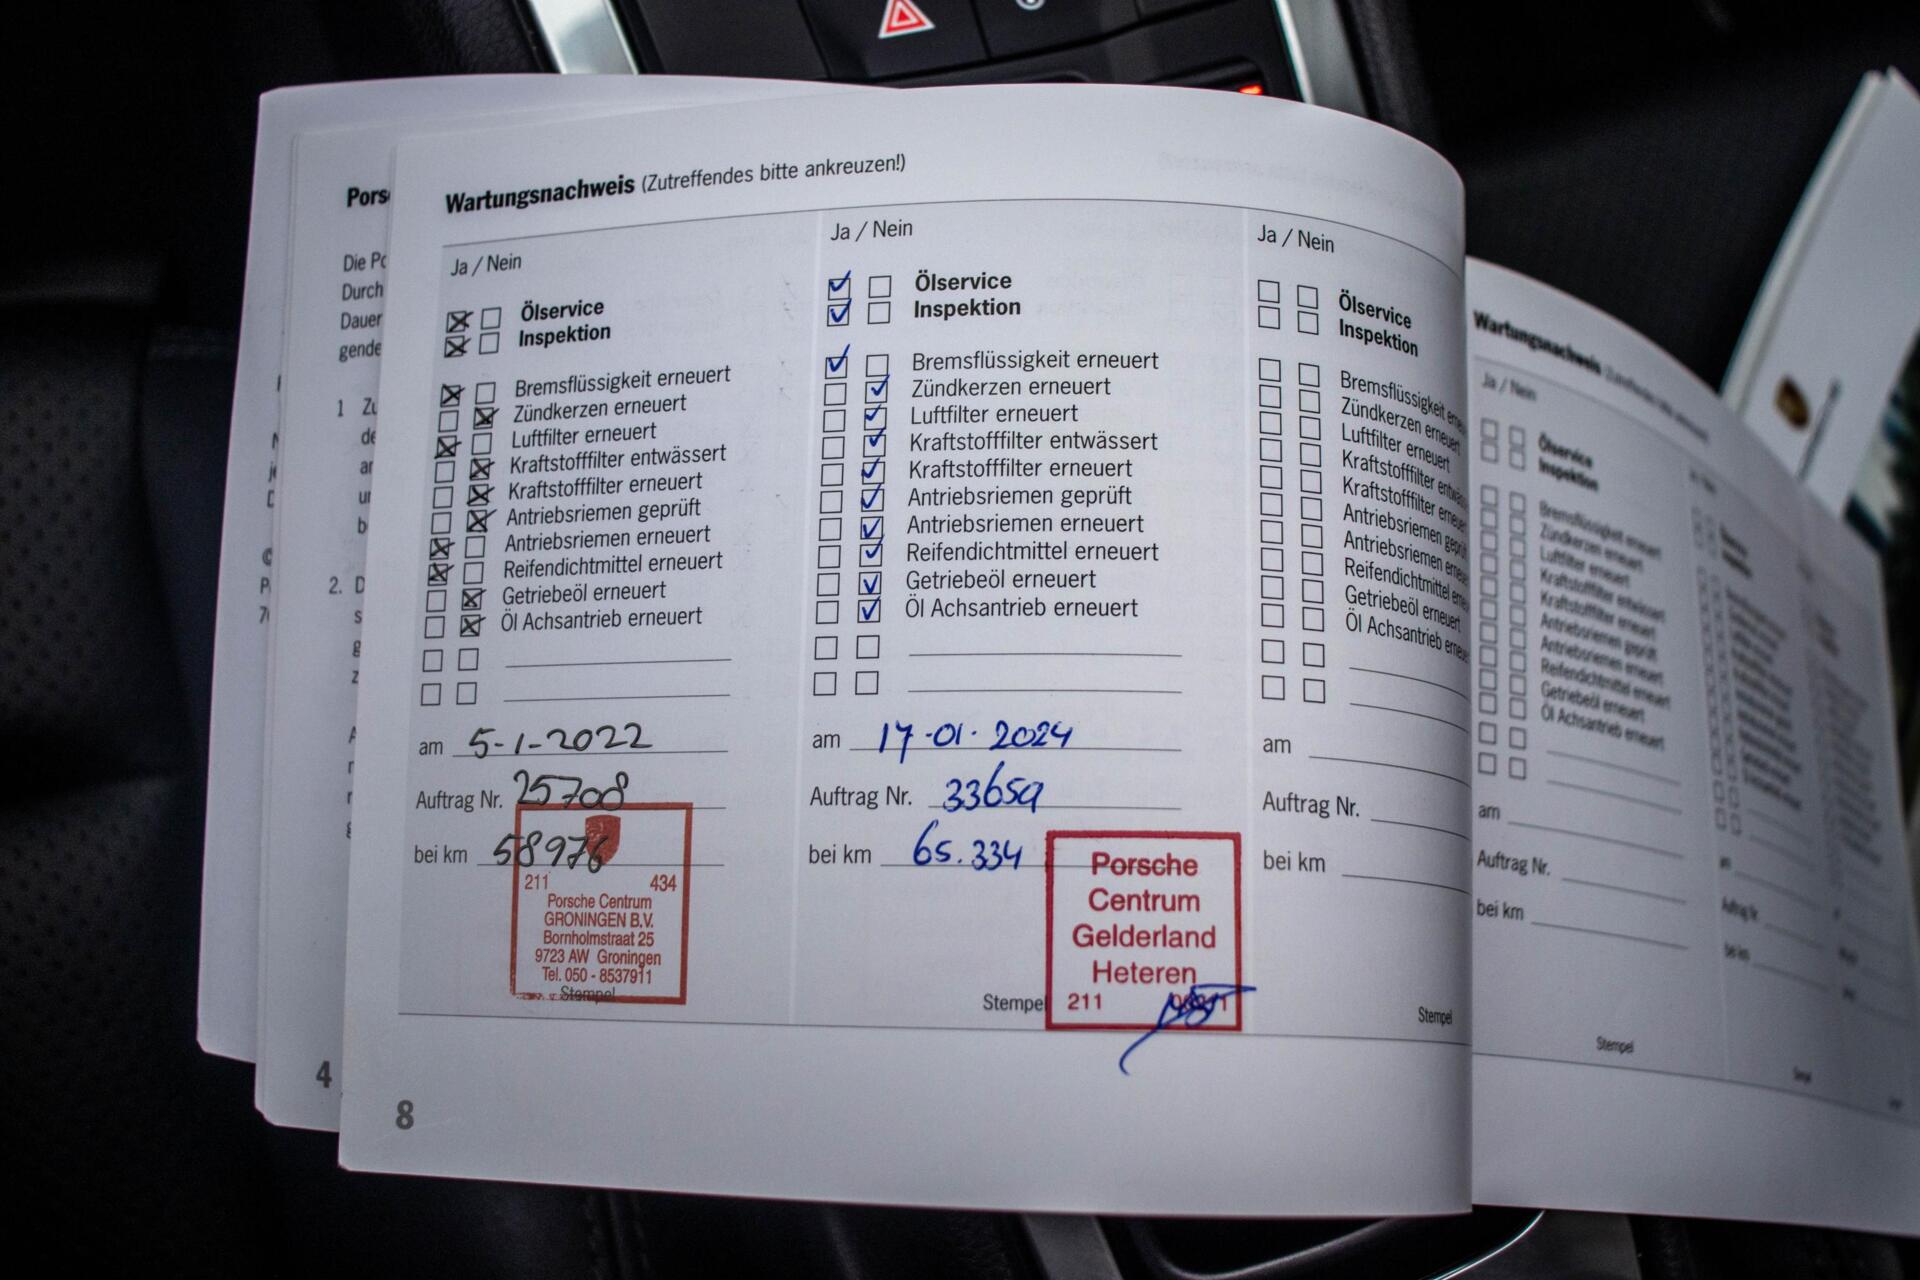 Pors
Die Po
Durch
Dauer
gende
1 Zu
2. D
4
Wartungsnachweis (Zutreffendes bitte ankreuzen!)
Ja / Nein
Ölservice
Inspektion
Bremsflüssigkeit erneuert
Zündkerzen erneuert
Luftfilter erneuert
Kraftstofffilter entwässert
Kraftstofffilter erneuert
Antriebsriemen geprüft
Antriebsriemen erneuert
Reifendichtmittel erneuert
Getriebeöl erneuert
Öl Achsantrieb erneuert
am 5-1-2022
Auftrag Nr. 25708
bei km 58976
211 434
Porsche Centrum
GRONINGEN B.V.
Bornholmstraat 25
9723 AW Groningen
Tel. 050 - 8537911
Stempel
8
Ja / Nein
Ölservice
Inspektion
Bremsflüssigkeit erneuert
Zündkerzen erneuert
Luftfilter erneuert
Kraftstofffilter entwässert
Kraftstofffilter erneuert
Antriebsriemen geprüft
Antriebsriemen erneuert
Reifendichtmittel erneuert
Getriebeöl erneuert
Öl Achsantrieb erneuert
am 17-01-2024
Auftrag Nr. 33659
bei km 65.334
Porsche
Centrum
Gelderland
Heteren
Stempel 211
Ja / Nein
Ölservice
Inspektion
Bremsflüssigkeit erne
Zündkerzen erneuert
Luftfilter erneuert
Kraftstofffilter entwäs
Kraftstofffilter erneuer
Antriebsriemen geprüf
Antriebsriemen erneue
Reifendichtmittel erne
Getriebeöl erneuert
Öl Achsantrieb erneue
am
Auftrag Nr.
bei km
Stempel
Wartungsnachweis
Ja / Nein
Ölservice
Inspektion
Bremsflüssigkeit erneuert
Zündkerzen erneuert
Luftfilter erneuert
Kraftstofffilter entwässert
Kraftstofffilter erneuert
Antriebsriemen geprüft
Antriebsriemen erneuert
Reifendichtmittel erneuert
Getriebeöl erneuert
Öl Achsantrieb erneuert
am
Auftrag Nr.
bei km
Stempel